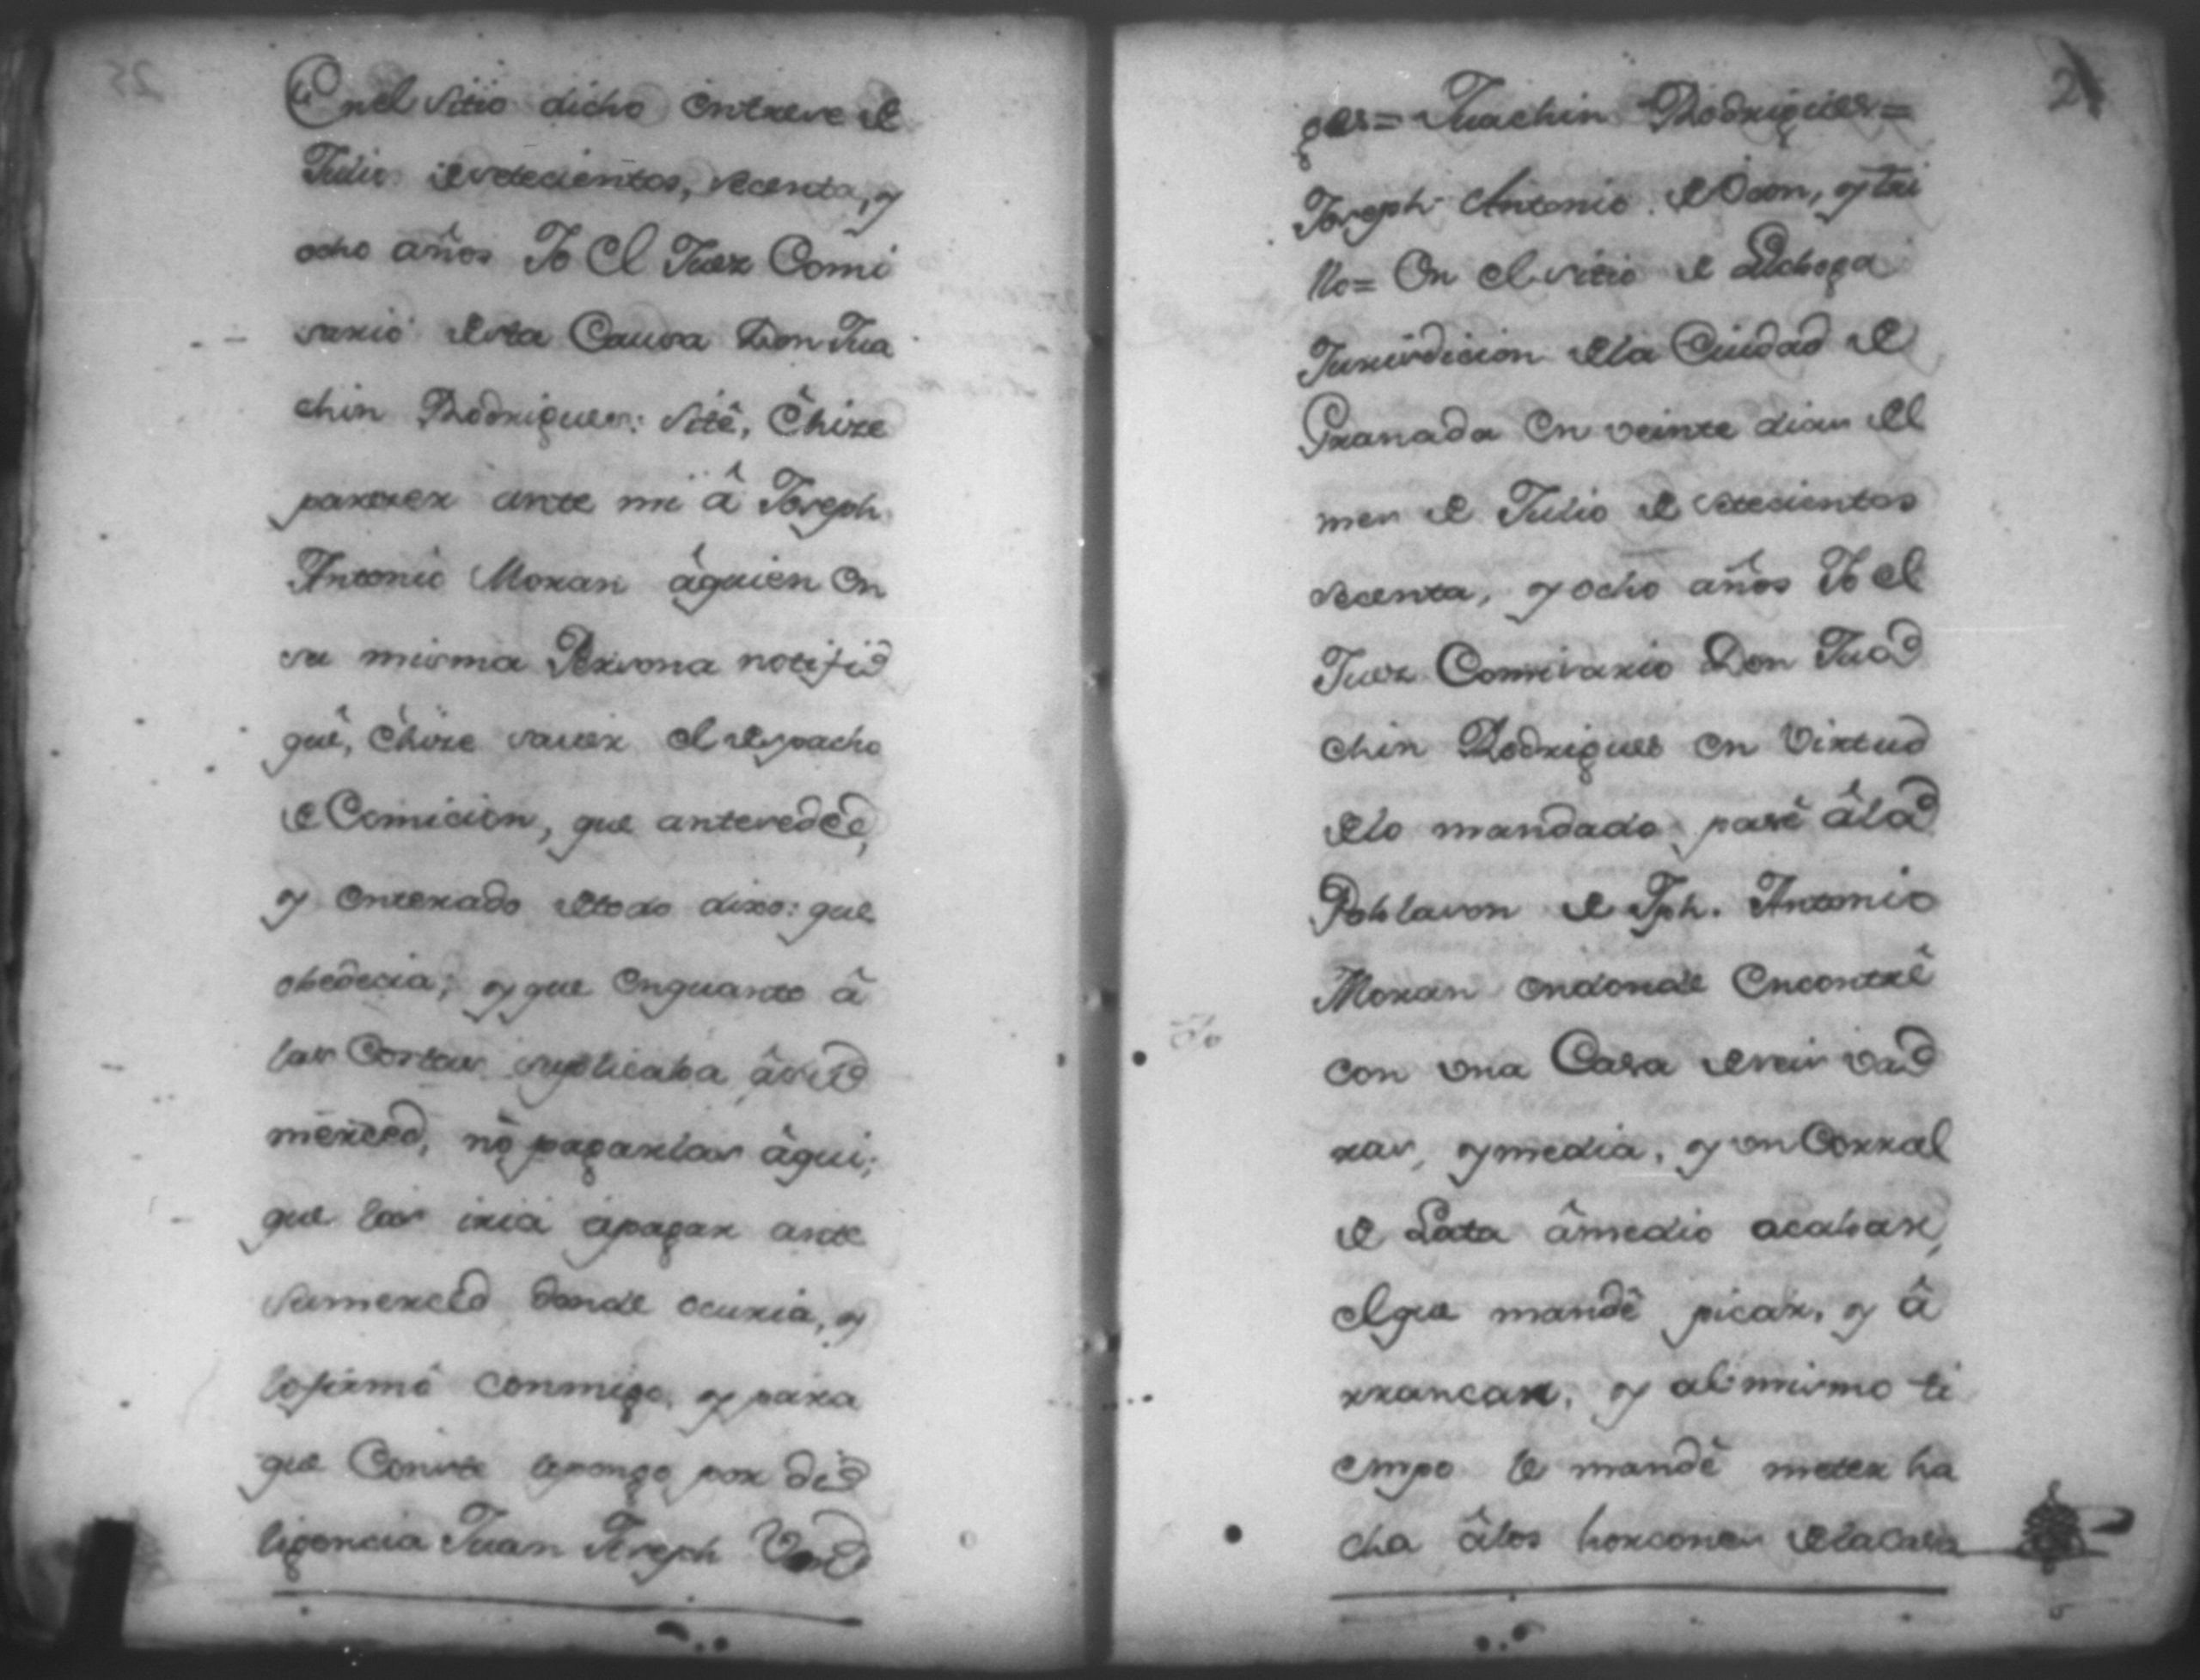 En el sitio dicho entrese de
Julio desetecientos, secenta, y
ocho años Yo el Juez Comi
sario desta Causa Don Jua
chin Rodrigues: sitê, êhize
pareser ante mi â Joseph
Antonio Moran âquien en
su misma Persona notifi
què, êhize saver el despacho
de Comicion, que antesede,
y enterado detodo dixo: que
obedecia; y que enquanto â
las Costas suplicaba âsu
merced, nô pagarlas âqui;
que las iria âpagar ante
sumerced donde ocuria, y
lofirmô conmigo, y para
que Conste lepongo por di
ligencia Juan Joseph
ges= Juachin Rodrigues=
Joseph Antonio de Ocon, y tri
llo= En el sitio de Lichoga
Jurisdicion dela Ciudad de
Granada en veinte dias del
mes de Julio de setecientos
secenta, y ocho años Yo el
Juez Comisario Don Jua
chin Rodrigues en virtud
delo mandado pasê âla
Poblason de Jph. Antonio
Moran endonde encontrê
con una Casa deseis va
ras, y media, y un Corral
de Lata âmedio acabar,
elque mandê picar, y â
rrancar, y al mismo ti
empo le mandê meter ha
cha âlos horcones delacasa